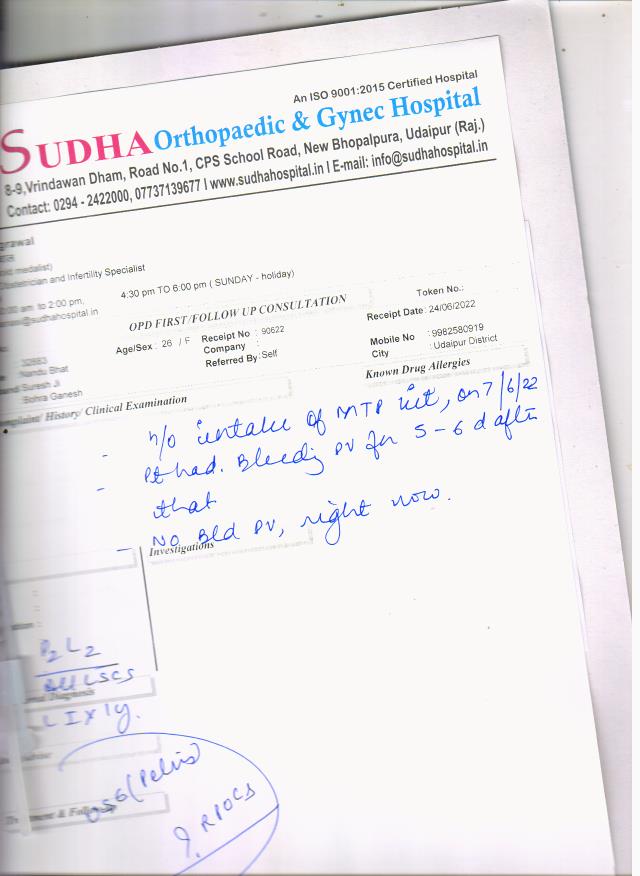 An ISO 9001:2015 Certified Hospital
SUDHA Orthopaedic & Gynec Hospital
8-9,Vrindawan Dham, Road No.1, CPS School Road, New Bhopalpura, Udaipur (Raj.)
Contact: 0294 - 2422000, 07737139677 I www.sudhahospital.in I E-mail: info@sudhahospital.in
grawal
medalist)
Obstetrician and Infertility Specialist
am to 2:00 pm, 4:30 pm TO 6:00 pm ( SUNDAY - holiday)
@sudhahospital.in
OPD FIRST/FOLLOW UP CONSULTATION
Token No.:
Receipt Date : 24/06/2022
Age/Sex : 26 / F
Receipt No : 90622
Company :
Referred By : Self
Mobile No : 9982580919
City : Udaipur District
Nandu Bhat
Suresh Ji
Bohra Ganesh
Known Drug Allergies
mplaint/ History/ Clinical Examination
- h/o intake of MTP kit, on 7/6/22
- Pt had. Bleeding PV for 5-6 d after
that
- No Bld PV, right now.
Investigations
P2 L2
All LSCS
Diagnosis
L I x 1y.
ment & Follow
USG (Pelvis)
? RPOCs